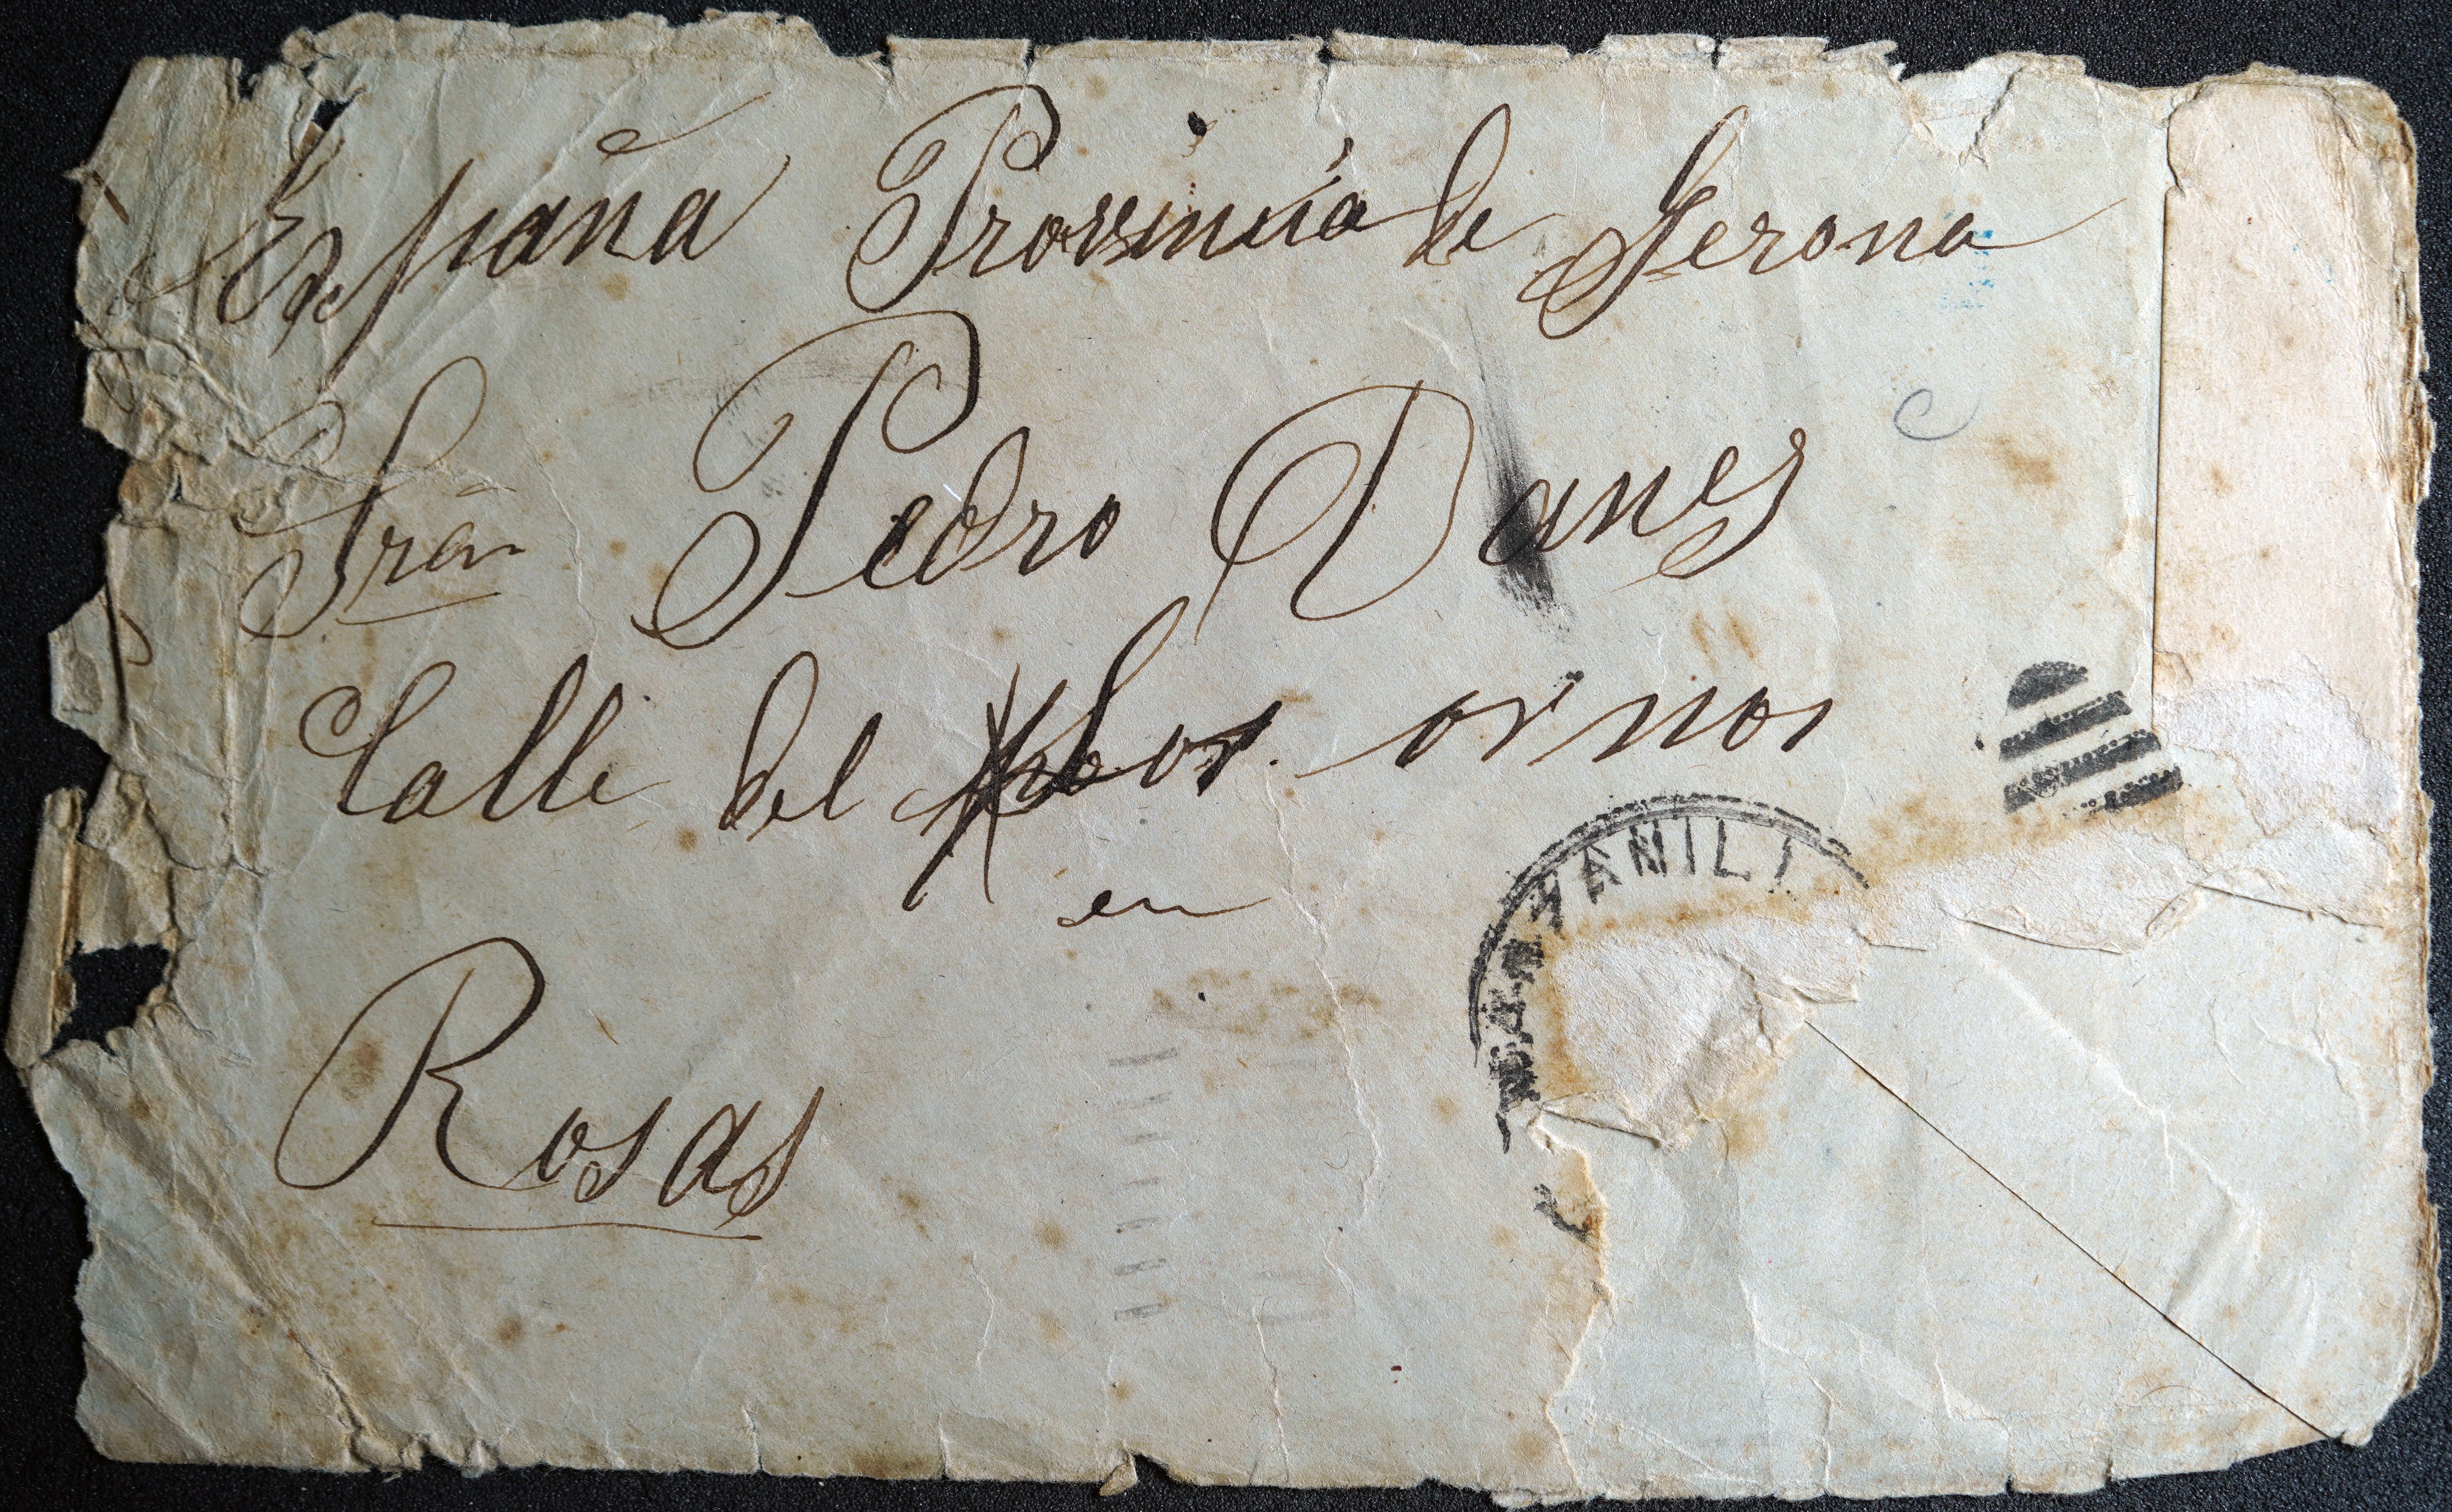 España Provincia de Gerona
Srãn Pedro Danes
Calle del ornos
en
Rosas
MANIL